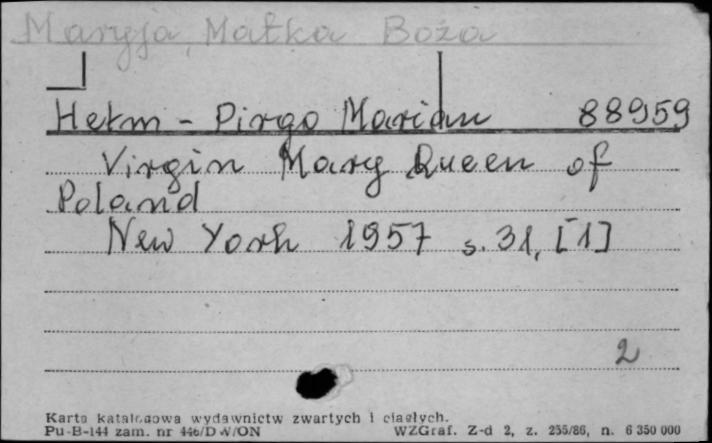 Maryja, Matka Boża
Hetm - Pirgo Marian 88959
Virgin Mary Queen of
Poland
New York 1957 s. 31, [1]
2
Karta katalogowa wydawnictw zwartych i ciągłych.
Pu-B-144 zam. nr 446/DW/ON WZGraf. Z-d 2, z. 255/86, n. 6 350 000